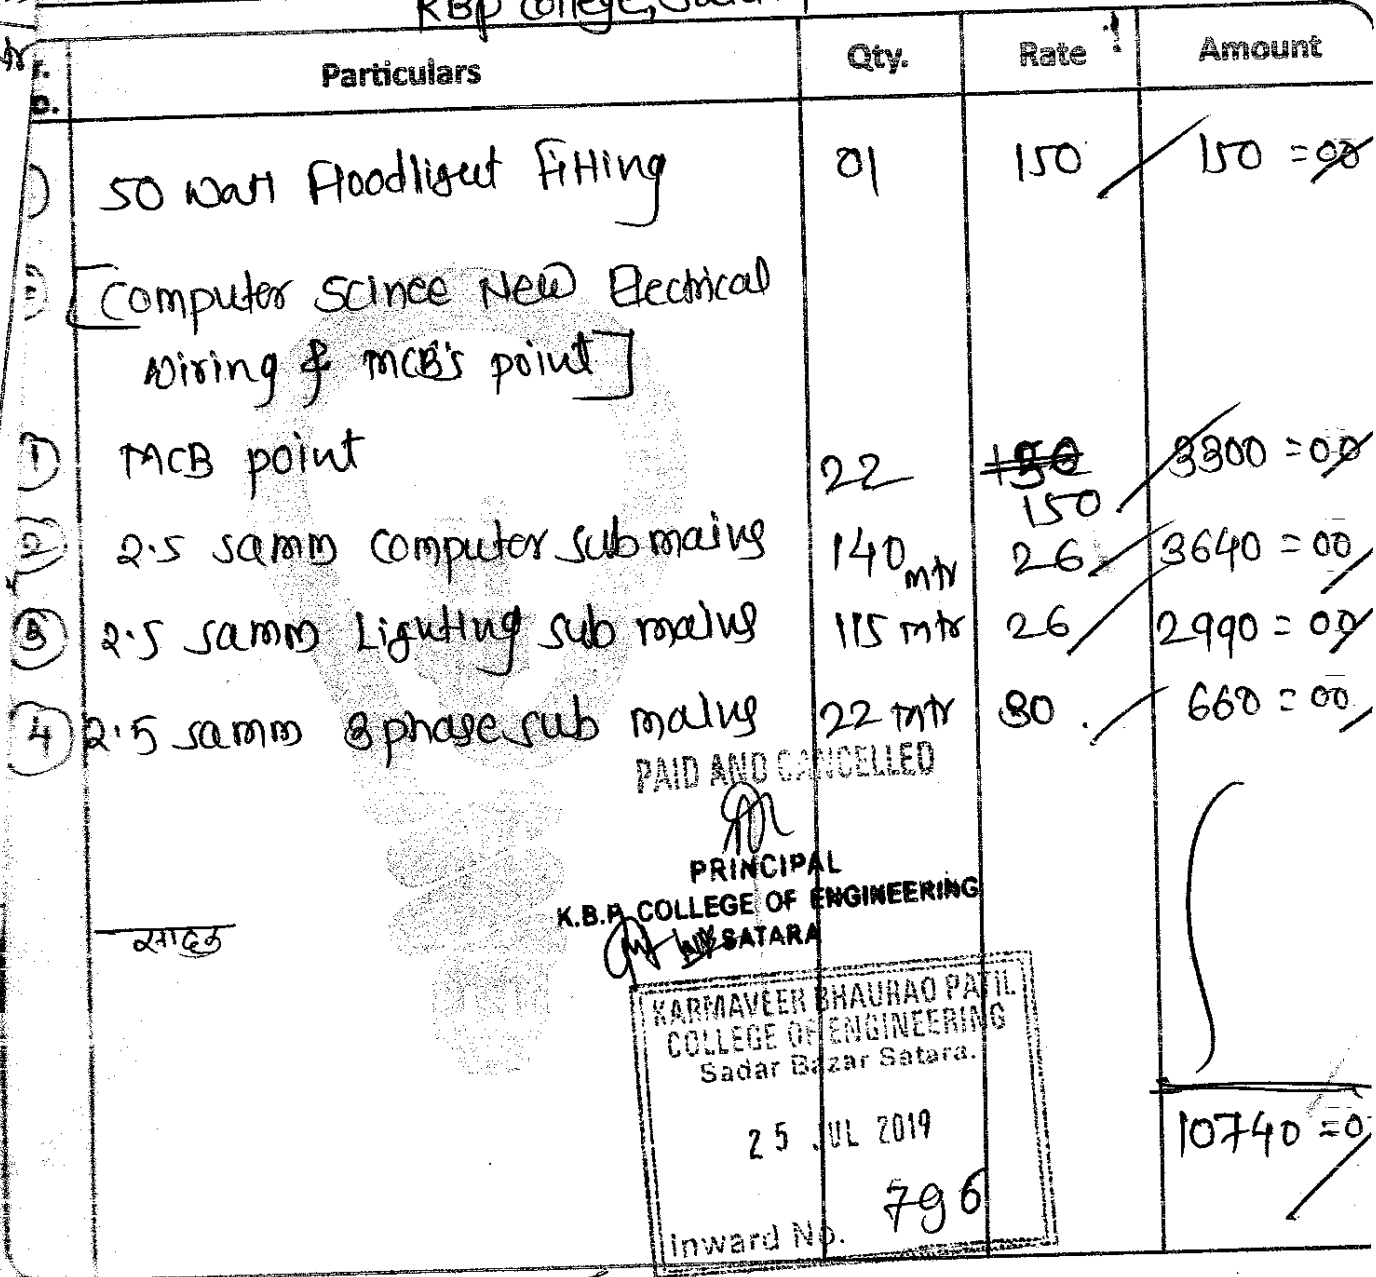 KBP College, Satara
Particulars Qty. Rate Amount
50 Watt Floodlight Fitting 01 150 150 = 00
[Computer Scince New Electrical
Wiring & MCB's point]
1 MCB point 22 150 150 3300 = 00
2 2.5 sqmm Computer sub mains 140 mtr 26 3640 = 00
3 2.5 sqmm Lighting sub mains 115 mtr 26 2990 = 00
4 2.5 sqmm 3 phase sub mains 22 mtr 30 660 = 00
PAID AND CANCELLED
PRINCIPAL
K.B.P. COLLEGE OF ENGINEERING
SATARA
KARMAVEER BHAURAO PATIL
COLLEGE OF ENGINEERING
Sadar Bazar Satara.
25 JUL 2019
10740 = 0
Inward No. 796